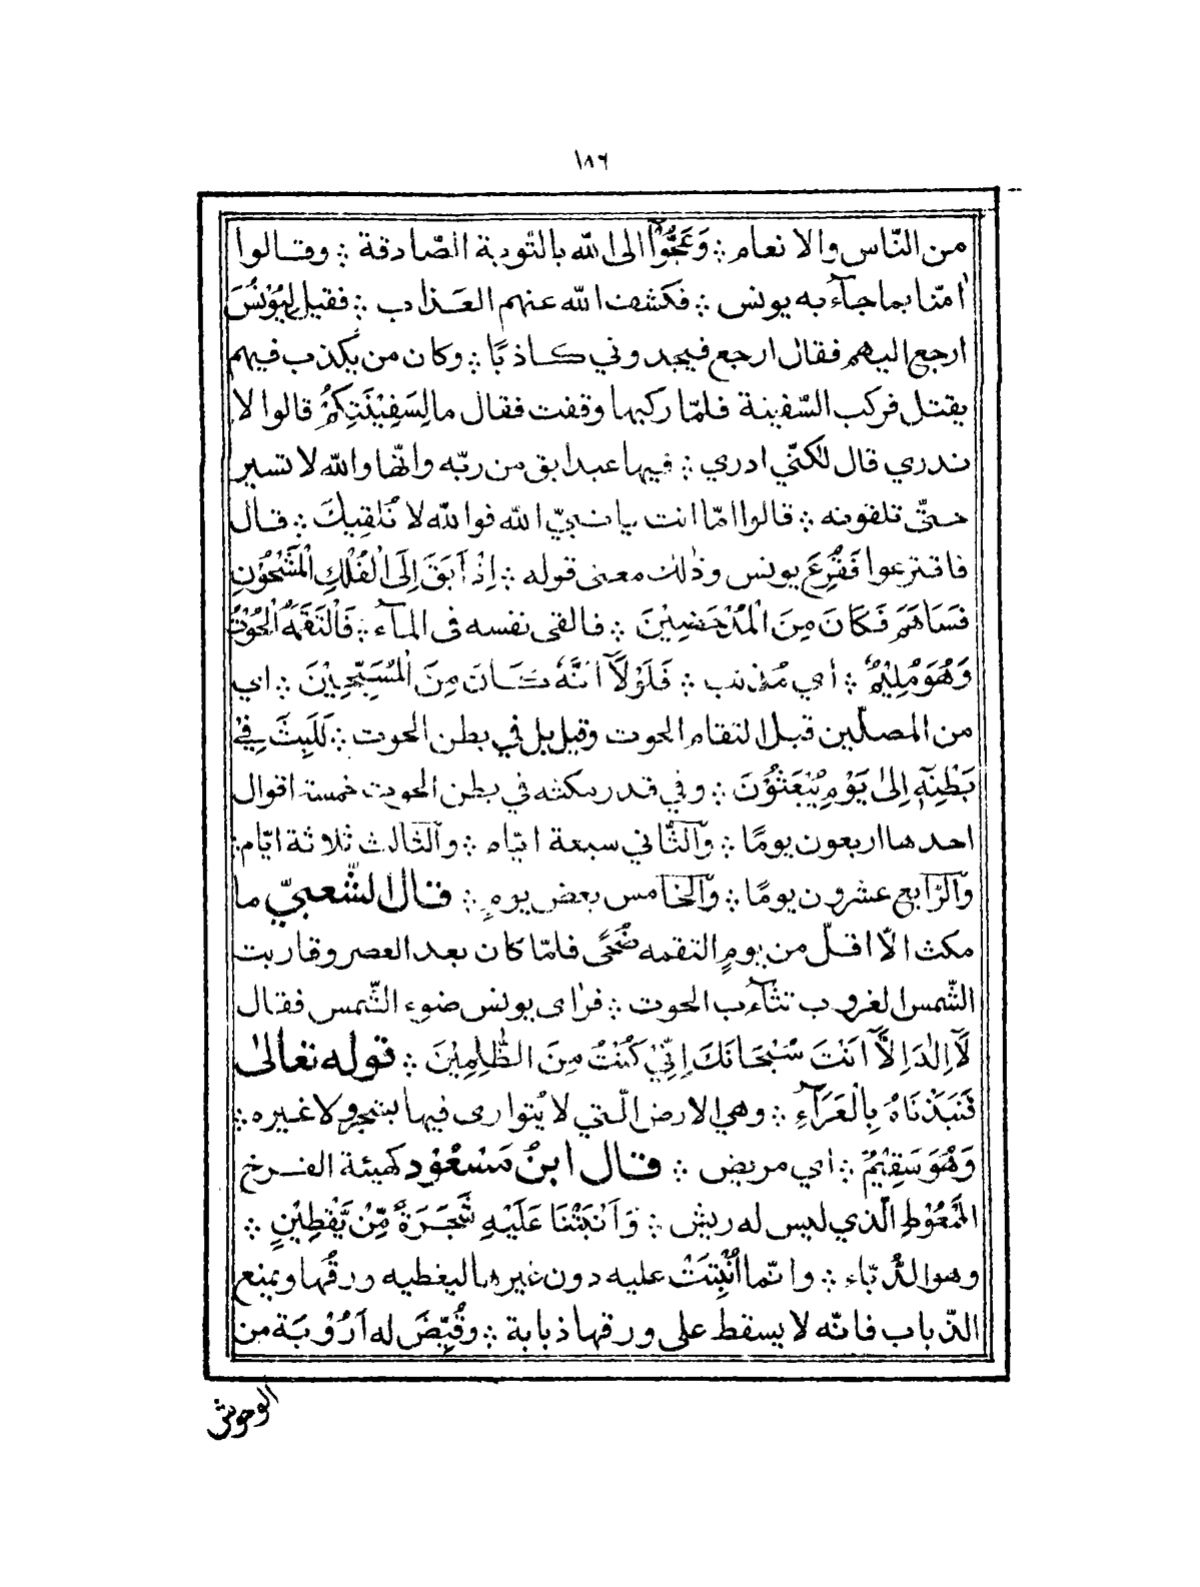 ١٨٦
من النّاس والانعام ⁘ وَعَجُّوْا الى الله بالتّوبة الصّادقة ⁘ وقالوا
اٰمنّا بما جآء به يونس ⁘ فكشف الله عنهم العذاب ⁘ فقيل لِيُوْنُسَ
ارجع اليهم فقال ارجع فيجدوني كاذبًا ⁘ وكان من يكذب فيهم
يقتل فركب السّفينة فلمّا ركبها وقفت فقال ما لِسَفِيْنَتِكُمْ قالوا لا
ندري قال لٰكنّي ادري ⁘ فيها عبد ابق من ربّه وانّها والله لا تسير
حتّى تلقونه ⁘ قالوا امّا انت يا نبيّ الله فوالله لا نُلْقِيكَ ⁘ قال
فاقترعوا فَقُرِعَ يونس وذلك معنى قوله ⁘ اِذْ اَبَقَ اِلَى الْفُلْكِ الْمَشْحُوْنِ
فَسَاهَمَ فَكَانَ مِنَ الْمُدْحَضِيْنَ ⁘ فالقى نفسه فى المآء ⁘ فَالْتَقَمَهُ الْحُوْتُ
وَهُوَ مُلِيْمٌ ⁘ اي مُذنب ⁘ فَلَوْلَآ اَنَّهٗ كَانَ مِنَ الْمُسَبِّحِيْنَ ⁘ اي
من المصلّين قبل التقام الحوت وقيل بل في بطن الحوت ⁘ لَلَبِثَ فِيْ
بَطْنِهٖٓ اِلىٰ يَوْمِ يُبْعَثُوْنَ ⁘ وفي قدر مكثه في بطن الحوت خمسة اقوال
احدها اربعون يومًا ⁘ والثّاني سبعة ايّام ⁘ والثّالث ثلاثة ايّام ⁘
والرّابع عشرون يومًا ⁘ والخامس بعض يومٍ ⁘ قال الشّعبيّ ما
مكث الّا اقلّ من يومٍ التقمه ضُحًى فلمّا كان بعد العصر وقاربت
الشّمس الغروب تثآءب الحوت ⁘ فرأى يونس ضوء الشّمس فقال
لَآ اِلٰهَ اِلَّآ اَنْتَ سُبْحَانَكَ اِنِّيْ كُنْتُ مِنَ الظّٰلِمِيْنَ ⁘ قوله تعالىٰ
فَنَبَذْنَاهُ بِالْعَرَآءِ ⁘ وهي الارض الّتي لا يُتوارى فيها بشجرٍ ولا غيره ⁘
وَهُوَ سَقِيْمٌ ⁘ اي مريض ⁘ قال ابنُ مَسْعُوْدٍ كهيئة الفرخ
المَمْعُوْطِ الّذي ليس له ريش ⁘ وَاَنْبَتْنَا عَلَيْهِ شَجَرَةً مِّنْ يَّقْطِيْنٍ ⁘
وهو الدُّبّاء ⁘ وانّما اُنْبِتَتْ عليه دون غيرها ليغطيه ورقُها ويمنع
الذّباب فانّه لا يسقط على ورقها ذبابة ⁘ وقُيِّضَ له اَرْوُيَة من
الوحوش